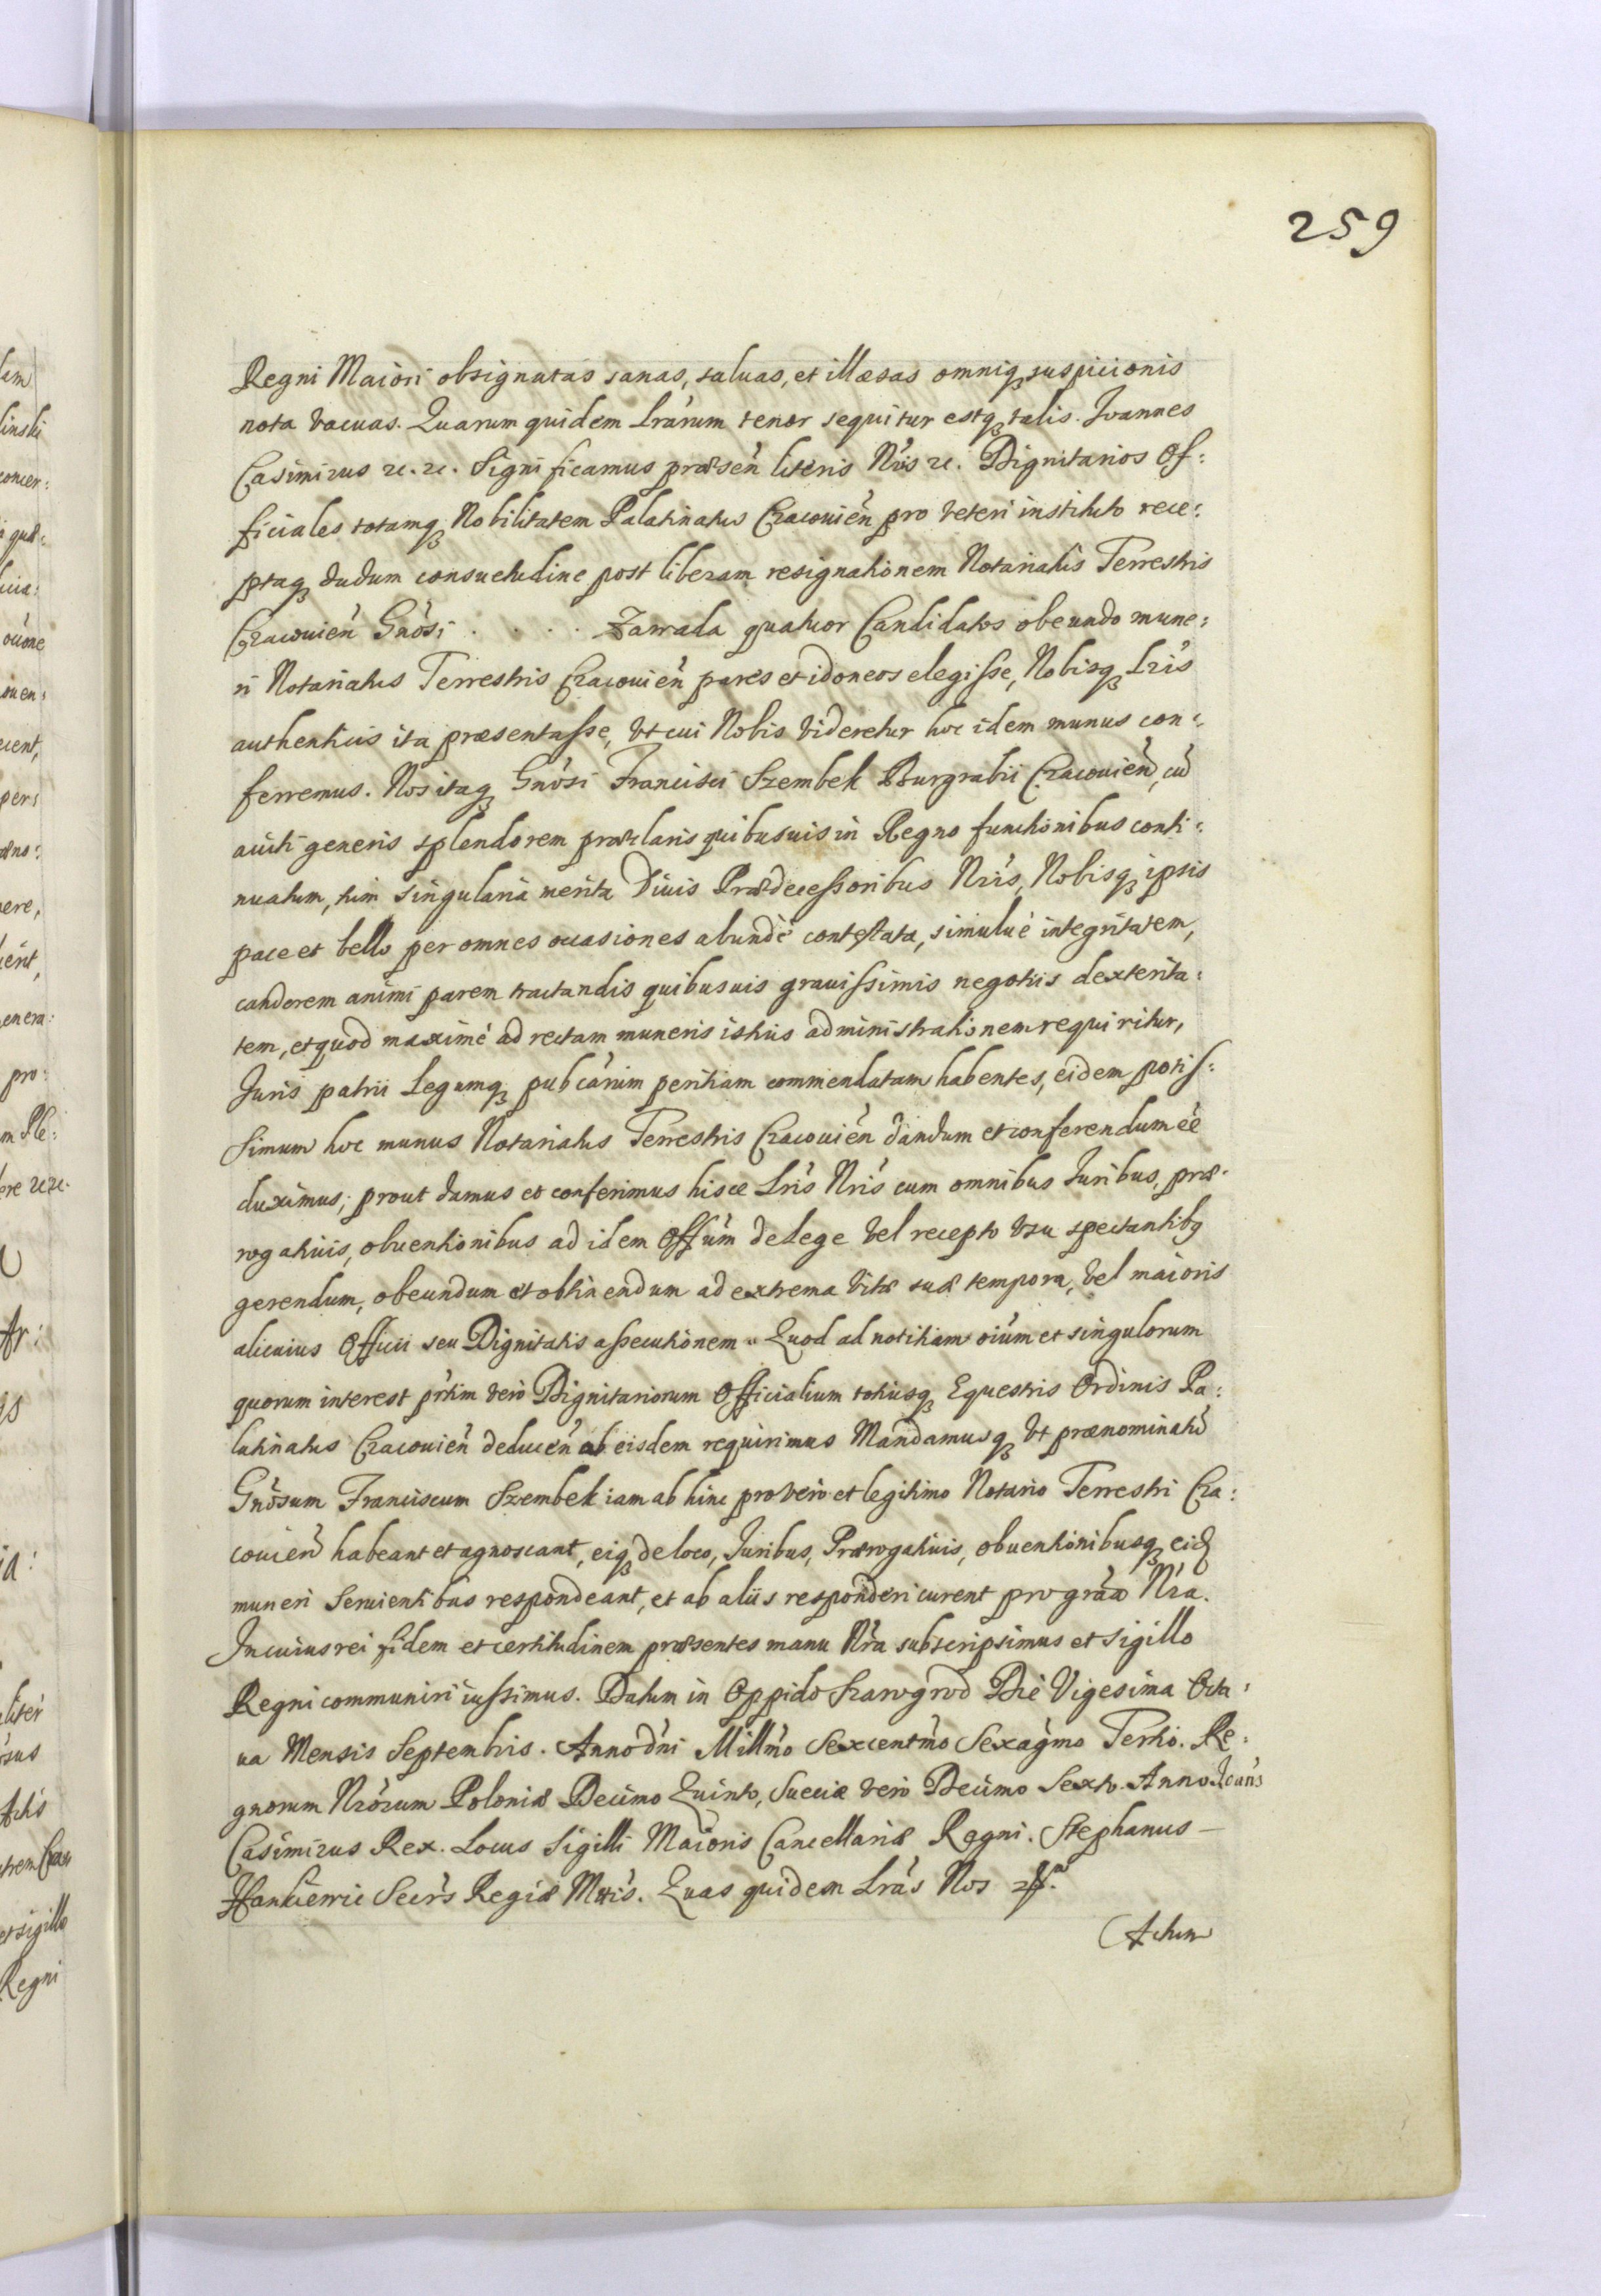 259
Regni Maiori obsignatas sanas, saluas, et illæsas omniq; suspicionis
nota vacuas. Quarum quidem Lrarum tenor sequitur estq; talis. Joannes
Casimirus etc. etc. Significamus præsen literis Nris etc. Dignitarios Of:
ficiales totamq; Nobilitatem Palatinatus Cracouien pro veteri instituto rece:
ptaq; dudum consuetudine post liberam resignationem Notariatus Terrestris
Cracouien Gnosi . . . . Zawada quatuor Candidatos obeundo mune:
ri Notariatus Terrestris Cracouien pares et idoneos elegisse, Nobisq; Lris
authenticis ita præsentasse, vt cui Nobis videretur hoc idem munus con:
ferremus. Nos itaq; Gnosi Francisci Szembek Burgrabii Cracouien, cu
auiti generis splendorem præclaris quibusuis in Regno functionibus conti:
nuatum, tum singularia merita Diuis Prædecessoribus Nris, Nobisq; ipsis
pace et bello per omnes occasiones abundè contestata, simulúe integritatem,
candorem animi parem tractandis quibusuis grauissimis negotiis dexterita:
tem, et quod maximè ad rectam muneris istius administrationem requiritur,
Juris patrii Legumq; pubcarum peritiam commendatam habentes, eidem potis:
simum hoc munus Notariatus Terrestris Cracouien dandum et conferendum ee
duximus; prout damus et conferimus hisce Lris Nris cum omnibus Juribus, præ:
rogatiuis, obuentionibus ad idem Offum de lege vel recepto vsu spectantibq
gerendum, obeundum et obtinendum ad extrema vitæ suæ tempora, vel maioris
alicuius Officii seu Dignitatis assecutionem. Quod ad notitiam oium et singulorum
quorum interest prtim vero Dignitariorum Officialium totiusq; Equestris Ordinis Pa:
latinatus Cracouien deducen ab eisdem requirimus Mandamusq; vt prænominatu
Gnosum Franciscum Szembek iam ab hinc pro vero et legitimo Notario Terrestri Cra:
couien habeant et agnoscant, eiq; de loco, Juribus, Prærogatiuis, obuentionibusq; eid
muneri seruientibus respondeant, et ab aliis responderi curent pro graa Nra.
In cuius rei fidem et certitudinem præsentes manu Nra subscripsimus et sigillo
Regni communiri iussimus. Datum in Oppido Szarogrod Die Vigesima Octa:
ua Mensis Septembris. Anno dni Millmo Sexcentmo Sexagmo Tertio. Re:
gnorum Nrorum Poloniæ Decimo Quinto, Sueciæ vero Decimo Sexto. Anno Joans
Casimirus Rex. Locus Sigilli Maioris Cancellariæ Regni. Stephanus –
Hankiewic Secrs Regiæ Mttis. Quas quidem Lras Nos
Actum